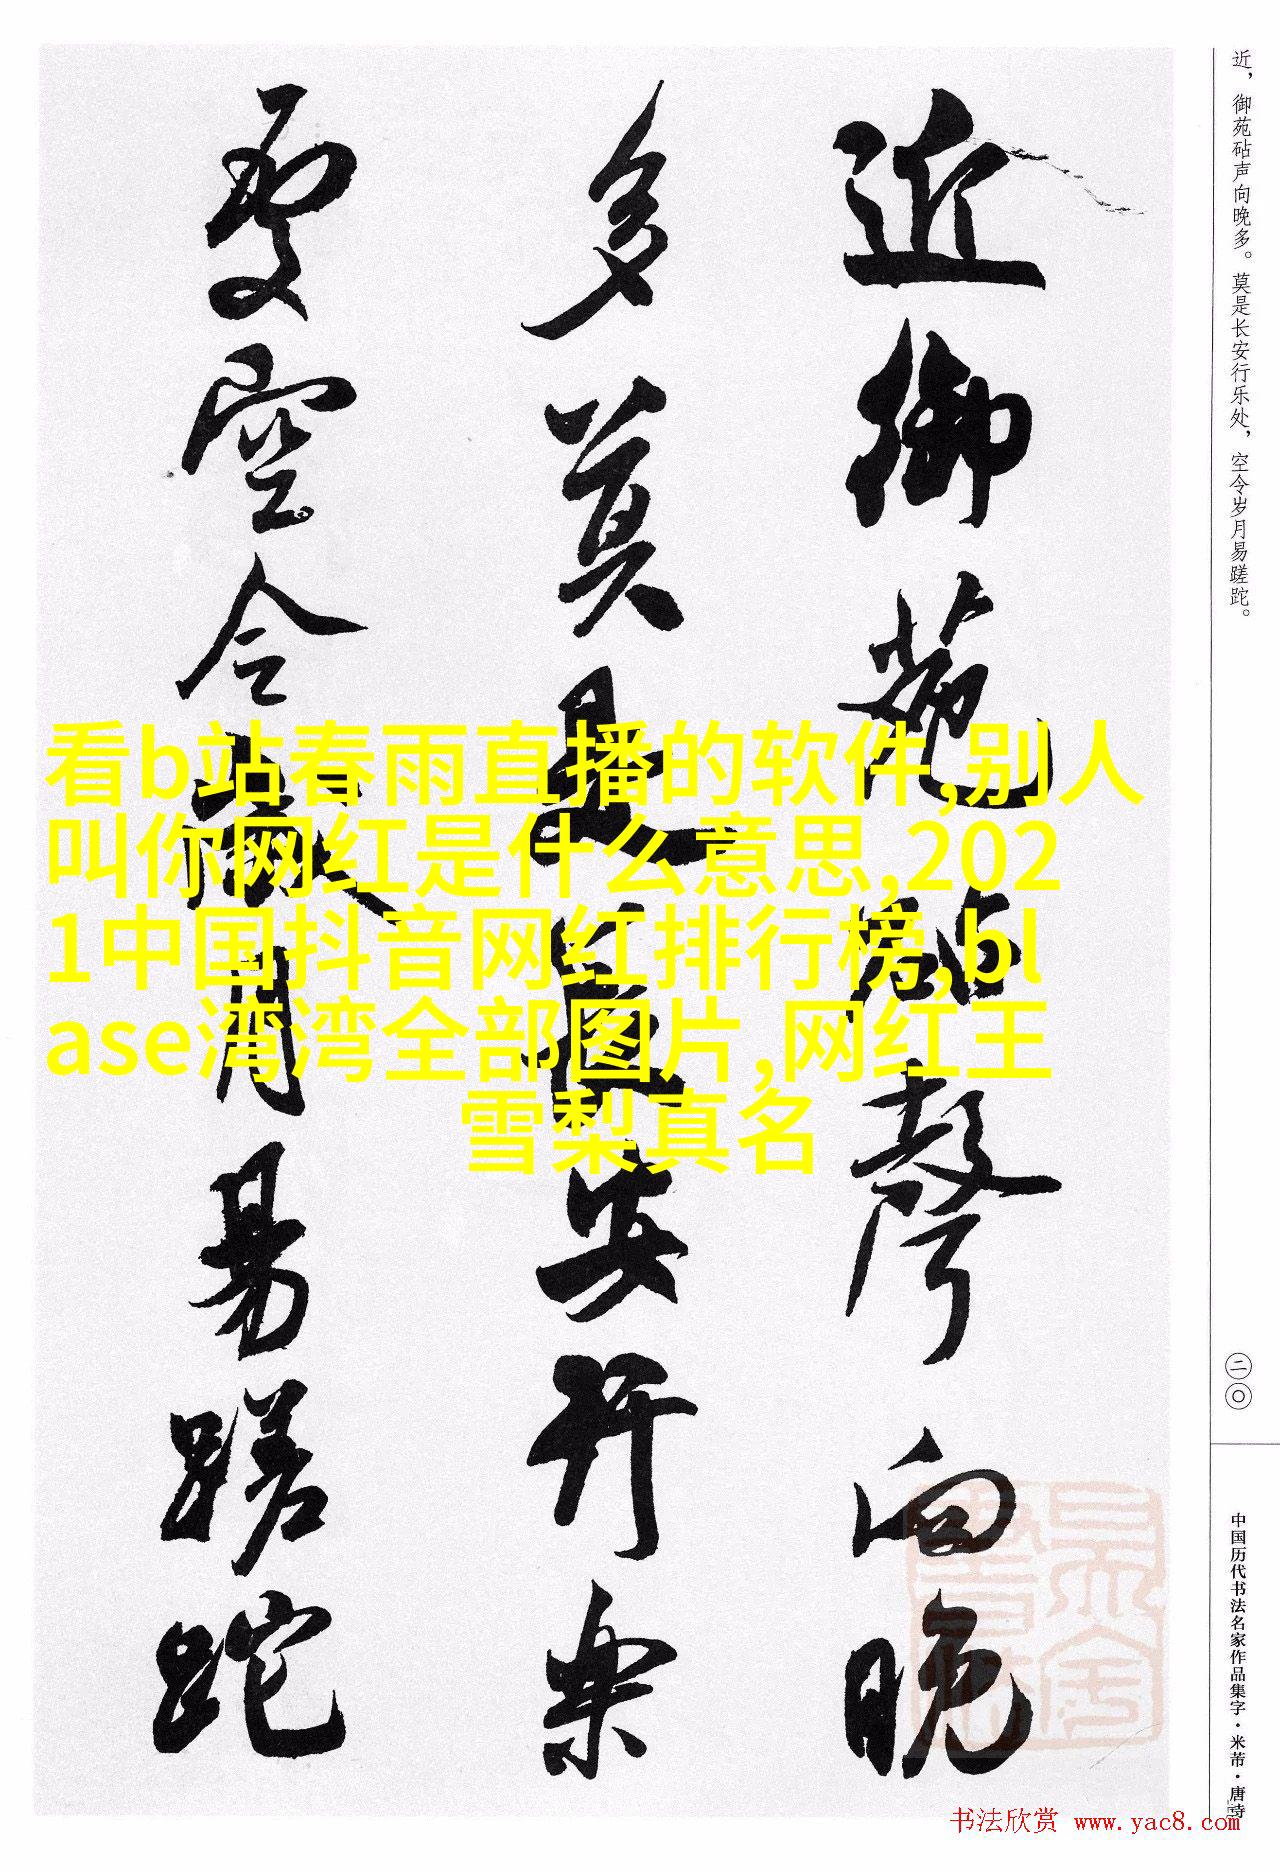 近，御苑砧声向晚多。莫是长安行乐处，空令岁月易蹉跎。
近御苑砧聲向晚
多莫是長安行樂
處空令歲月易蹉跎
看b站春雨直播的软件,别人
叫你网红是什么意思,202
1中国抖音网红排行榜,bl
ase湾湾全部图片,网红王
雪梨真名
二〇
中国历代书法名家作品集字·米芾·唐诗
书法欣赏 www.yac8.com